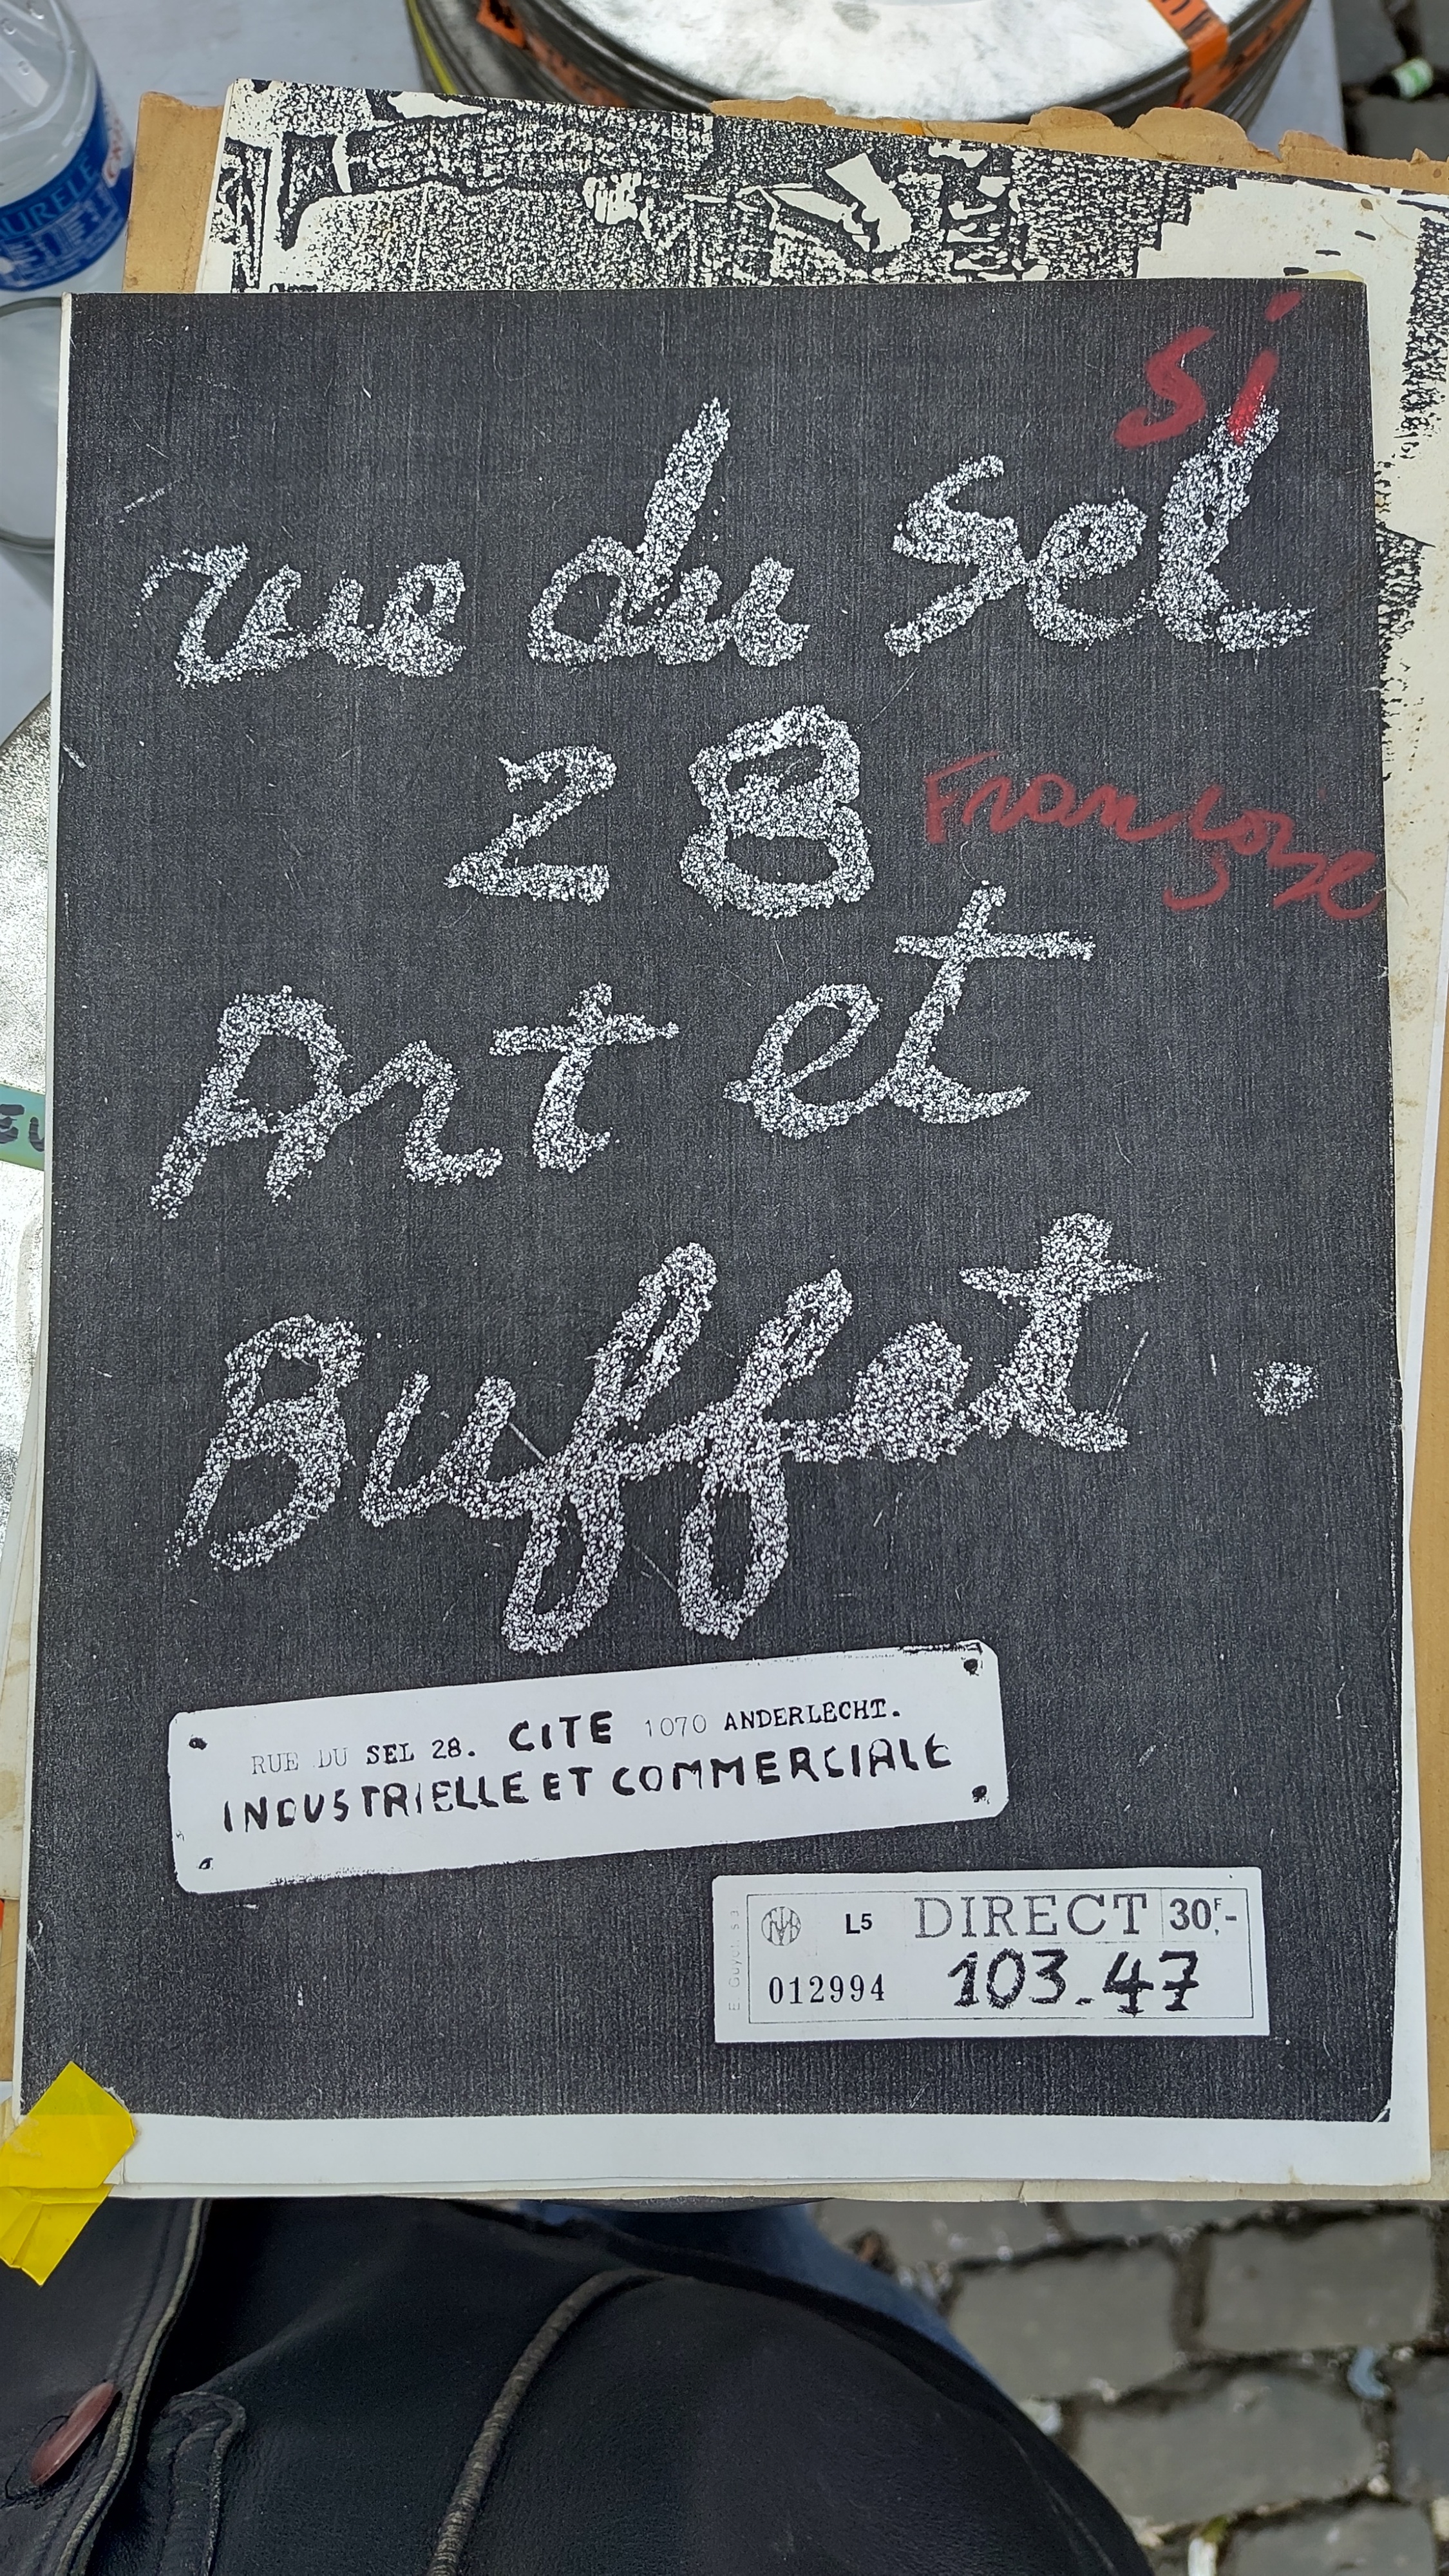 si
rue du sel
28
Françoise
Art et
Buffet.
RUE DU SEL 28. CITE 1070 ANDERLECHT.
INDUSTRIELLE ET COMMERCIALE
L5 DIRECT 30F,-
012994 103.47